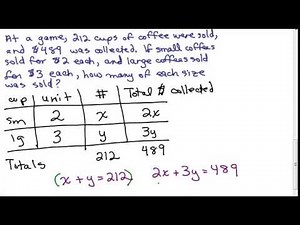 At a game, 212 cups of coffee were sold,
and $489 was collected. If small coffees
sold for $2 each, and large coffees sold
for $3 each, how many of each size
was sold?
cup unit # Total $ collected
sm 2 x 2x
lg 3 y 3y
Totals 212 489
(x + y = 212) 2x + 3y = 489